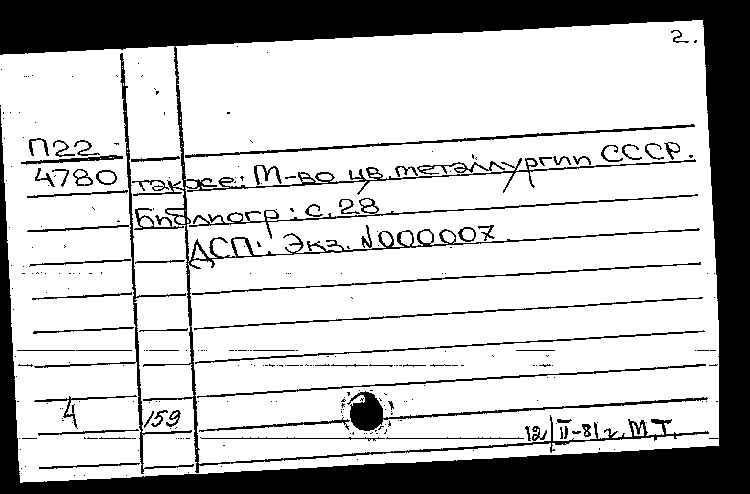 2.
П22
4780 также: М-во цв. металлургии СССР.
Библиогр: с. 28.
ДСП: Экз. №000007
4 159
12/II-81 г. М.Т.